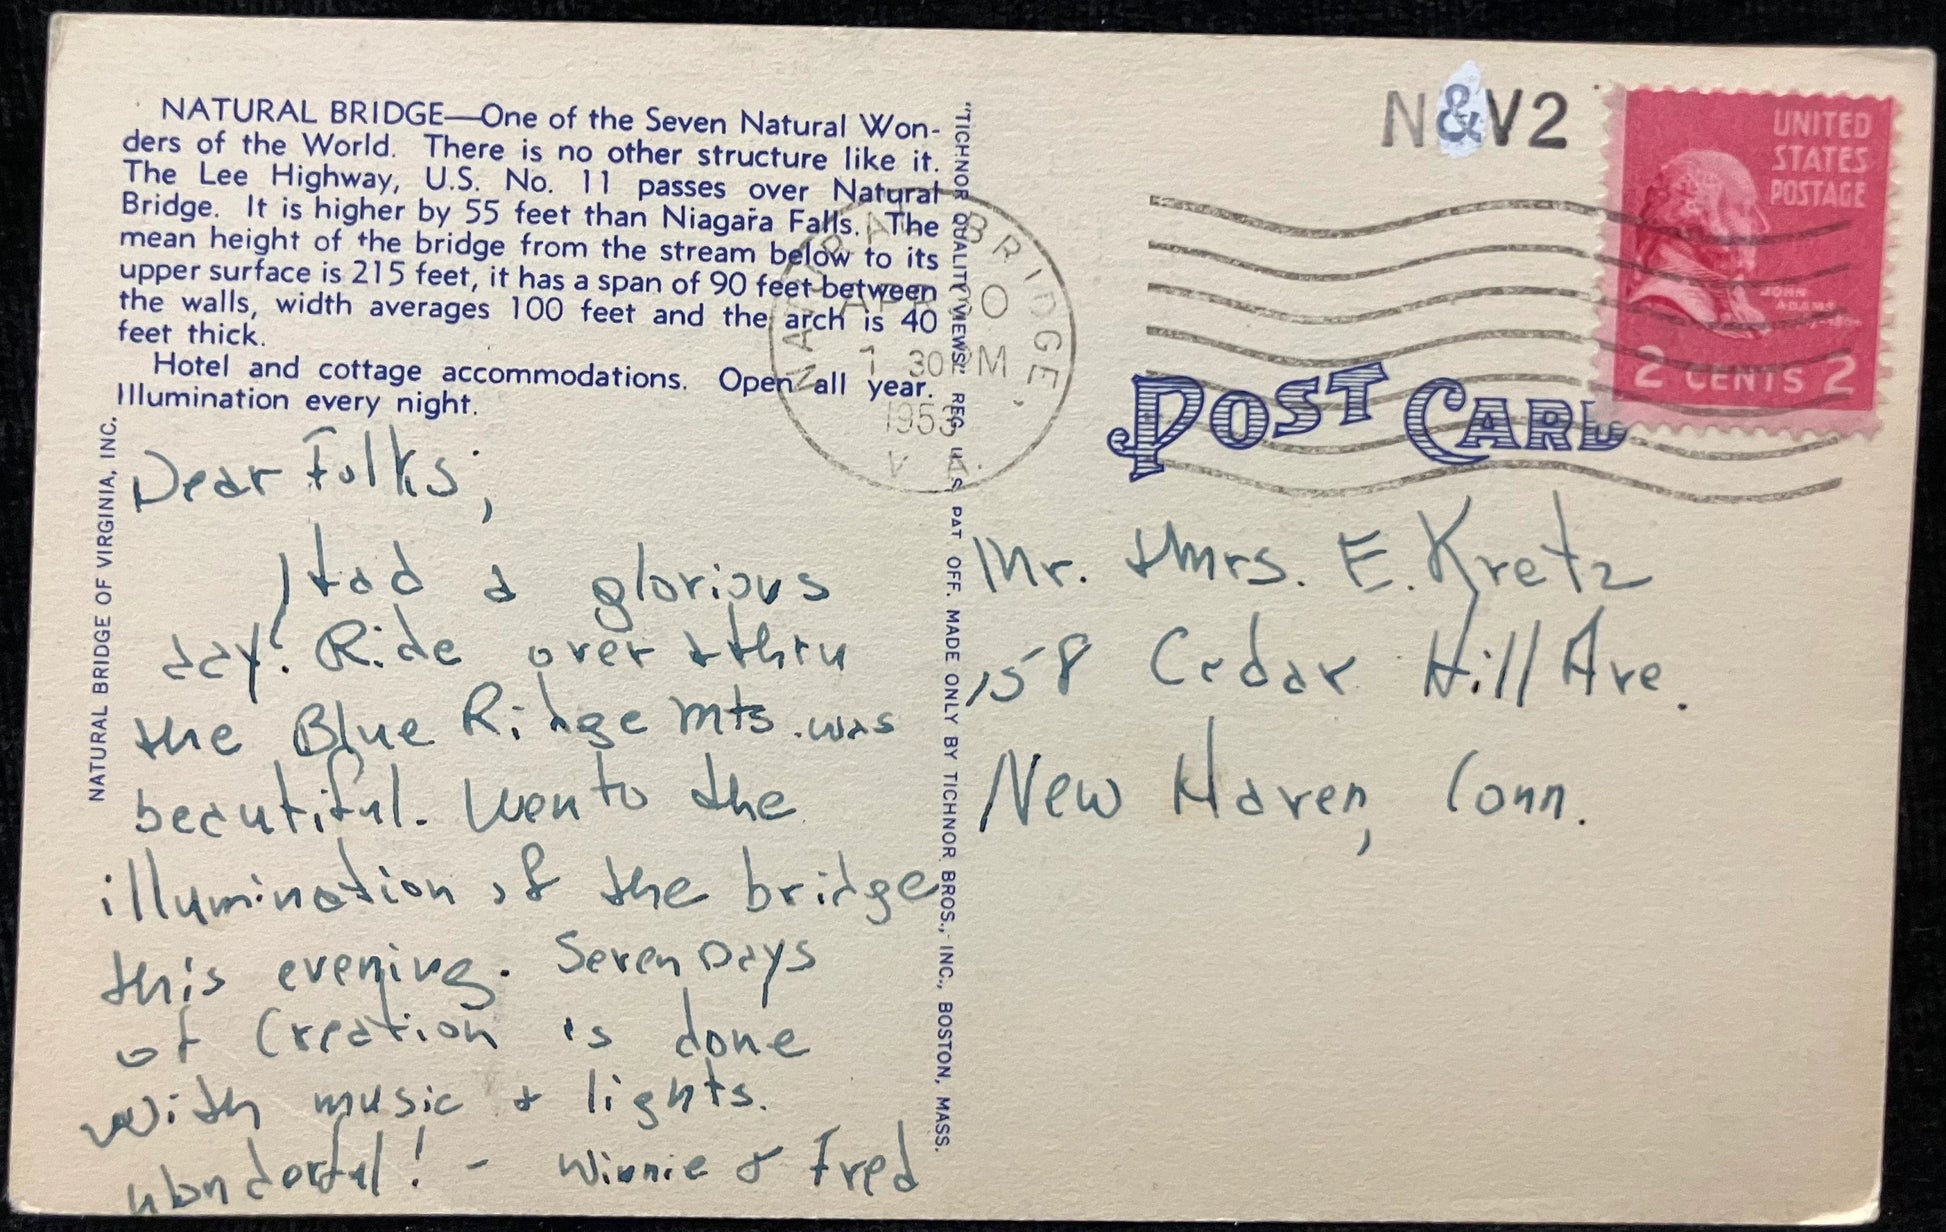 NATURAL BRIDGE—One of the Seven Natural Won-
ders of the World. There is no other structure like it.
The Lee Highway, U.S. No. 11 passes over Natural
Bridge. It is higher by 55 feet than Niagara Falls. The
mean height of the bridge from the stream below to its
upper surface is 215 feet, it has a span of 90 feet between
the walls, width averages 100 feet and the arch is 40
feet thick.
Hotel and cottage accommodations. Open all year.
Illumination every night.
NATURAL BRIDGE OF VIRGINIA, INC.
Dear Folks,
Had a glorious
day! Ride over & thru
the Blue Ridge Mts. was
beautiful. Wen to the
illumination of the bridge
this evening. Seven Days
of Creation is done
with music & lights.
Wonderful! - Winnie & Fred
"TICHNOR QUALITY VIEWS" REG. U. S. PAT. OFF. MADE ONLY BY TICHNOR BROS., INC., BOSTON, MASS.
NATURAL BRIDGE,
APR
1 30 PM
1953
VA.
N&V2
UNITED
STATES
POSTAGE
JOHN
ADAMS
2 CENTS 2
POST CARD
Mr. & Mrs. E. Kretz
158 Cedar Hill Ave.
New Haven, Conn.